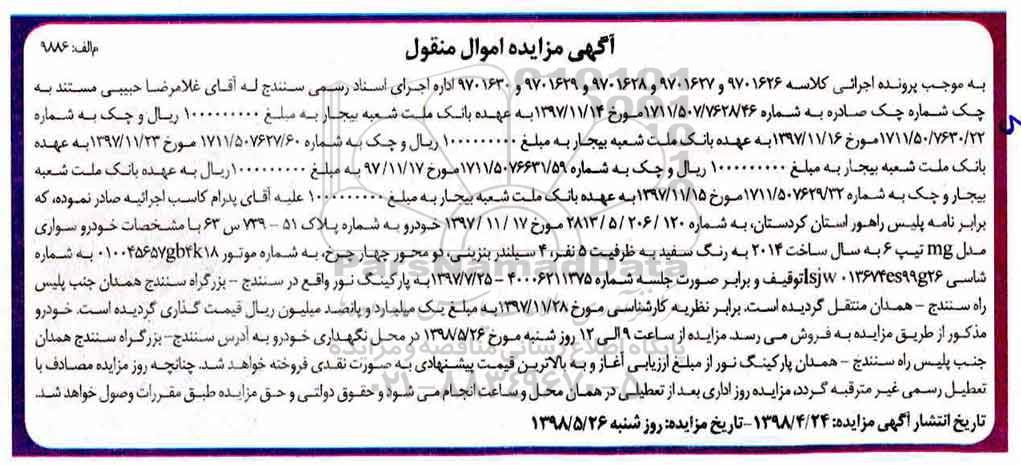 آگهی مزایده اموال منقول
م‌الف: ۹۸۸۶
به موجب پرونده اجرائی کلاسه ۹۷۰۱۶۲۶ و ۹۷۰۱۶۲۷ و ۹۷۰۱۶۲۸ و ۹۷۰۱۶۲۹ و ۹۷۰۱۶۳۰ اداره اجرای اسناد رسمی سنندج له آقای غلامرضا حبیبی مستند به
چک شماره چک صادره به شماره ۱۷۱۱/۵۰۷/۷۶۲۸/۴۶مورخ ۱۳۹۷/۱۱/۱۴به عهده بانک ملت شعبه بیجار به مبلغ ۱۰۰۰۰۰۰۰۰۰ ریال و چک به شماره
۱۷۱۱/۵۰/۷۶۳۰/۲۲مورخ ۱۳۹۷/۱۱/۱۶به عهده بانک ملت شعبه بیجار به مبلغ ۱۰۰۰۰۰۰۰۰۰ ریال و چک به شماره ۱۷۱۱/۵۰۷۶۲۷/۶۰ مورخ ۱۳۹۷/۱۱/۲۳به عهده
بانک ملت شعبه بیجار به مبلغ ۱۰۰۰۰۰۰۰۰۰ ریال و چک به شماره ۱۷۱۱/۵۰۷۶۶۳۱/۵۹مورخ ۹۷/۱۱/۱۷ به مبلغ ۱۰۰۰۰۰۰۰۰۰ریال به عهده بانک ملت شعبه
بیجار و چک به شماره ۱۷۱۱/۵۰۷۶۲۹/۳۲مورخ ۱۳۹۷/۱۱/۱۵به عهده بانک ملت شعبه بیجار به مبلغ ۱۰۰۰۰۰۰۰۰۰ علیه آقای پدرام کاسب اجرائیه صادر نموده، که
برابر نامه پلیس راهور استان کردستان، به شماره ۱۲۰ / ۲۰۶ / ۵ /۲۸۱۳ مورخ ۱۷ / ۱۱/ ۱۳۹۷ خودرو به شماره پلاک ۵۱ – ۷۳۹ س ۶۳ با مشخصات خودرو سواری
مدل mg تیپ ۶ به سال ساخت ۲۰۱۴ به رنگ سفید به ظرفیت ۵ نفر، ۴ سیلندر بنزینی، دو محور چهار چرخ، به شماره موتور ۰۱۰۰۴۵۶۵۷gb۲۴k۱۸ به شماره
شاسی lsjw ۰۱۳۶۷۴es۹۹g۲۶توقیف و برابر صورت جلسه شماره ۴۰۰۰۶۲۱۱۳۷۵ – ۱۳۹۷/۷/۲۵به پارکینگ نور واقع در سنندج – بزرگراه سنندج همدان جنب پلیس
راه سنندج – همدان منتقل گردیده است. برابر نظریه کارشناسی مورخ ۱۳۹۷/۱۱/۲۸به مبلغ یک میلیارد و پانصد میلیون ریال قیمت گذاری گردیده است. خودرو
مذکور از طریق مزایده به فروش می رسد. مزایده از ساعت ۹ الی ۱۲ روز شنبه مورخ ۱۳۹۸/۵/۲۶ در محل نگهداری خودرو به آدرس سنندج– بزرگراه سنندج همدان
جنب پلیس راه سنندج – همدان پارکینگ نور از مبلغ ارزیابی آغاز و به بالاترین قیمت پیشنهادی به صورت نقدی فروخته خواهد شد. چنانچه روز مزایده مصادف با
تعطیل رسمی غیر مترقبه گردد، مزایده روز اداری بعد از تعطیلی در همان محل و ساعت انجام می شود و حقوق دولتی و حق مزایده طبق مقررات وصول خواهد شد.
تاریخ انتشار آگهی مزایده: ۱۳۹۸/۴/۲۴-تاریخ مزایده: روز شنبه ۱۳۹۸/۵/۲۶
ParsNamadData
پایگاه اطلاع رسانی مناقصه و مزایده
۰۲۱-۸۸۳۴۹۶۷۰-۵